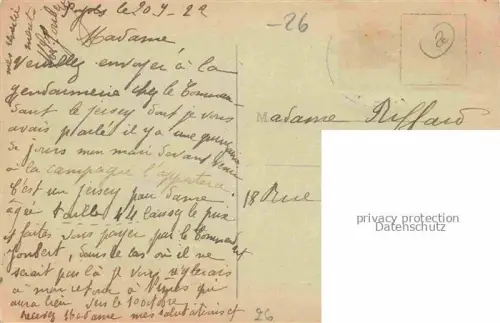 le 20 9 - 22
-26
Madame
Veuillez envoyer à la
gendarmerie chez le Comman
dant le jersey dont je vous
avais parlé il y a une quinzaine
de jours mon mari devant venir
à la campagne l'apportera
C'est un jersey pour dame
âgée taille 44 laissez le prix
et faites vous payer par le Commandant
Joubert, dans le cas où il ne
serait pas là je vous réglerais
à mon retour à Nîmes qui
aura lieu sur le 10 octobre
Recevez Madame mes salutations et
mes
20
Madame Riffard
18 Rue
privacy protection
www.ansichtskartenversand.com
26